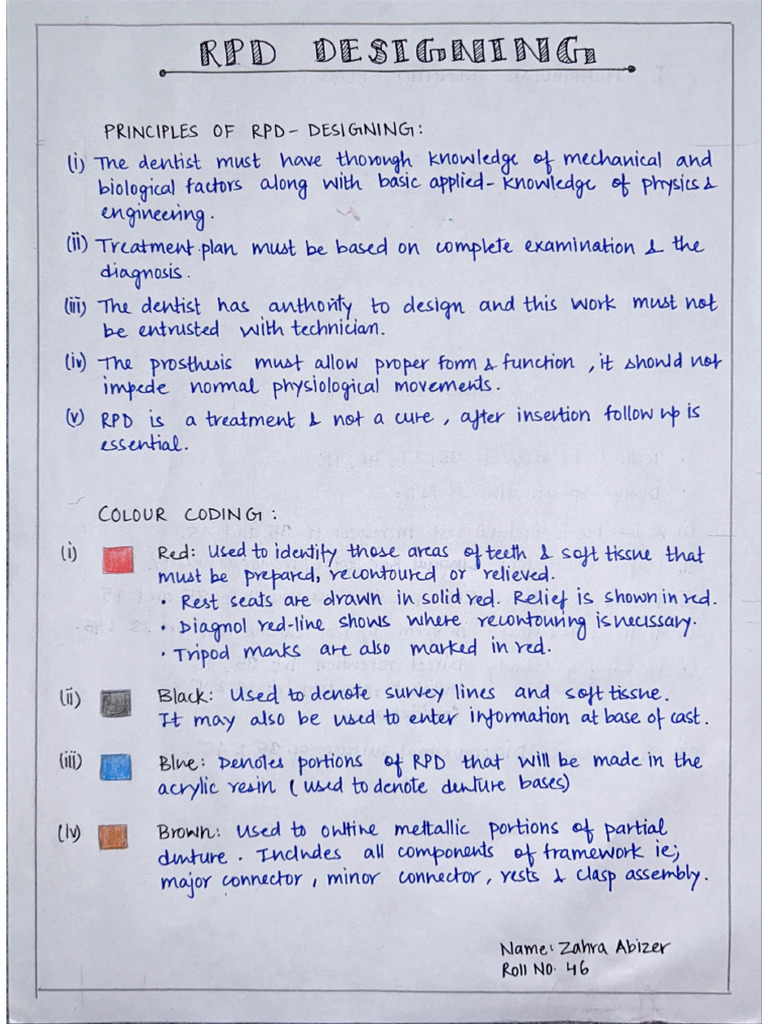 RPD DESIGNING
PRINCIPLES OF RPD-DESIGNING:
(i) The dentist must have thorough knowledge of mechanical and
biological factors along with basic applied-knowledge of physics &
engineering.
(ii) Treatment plan must be based on complete examination & the
diagnosis.
(iii) The dentist has authority to design and this work must not
be entrusted with technician.
(iv) The prosthesis must allow proper form & function, it should not
impede normal physiological movements.
(v) RPD is a treatment & not a cure, after insertion follow up is
essential.
COLOUR CODING:
(i) Red: Used to identify those areas of teeth & soft tissue that
must be prepared, recontoured or relieved.
• Rest seats are drawn in solid red. Relief is shown in red.
• Diagnol red-line shows where recontouring is necissary.
• Tripod marks are also marked in red.
(ii) Black: Used to denote survey lines and soft tissue.
It may also be used to enter information at base of cast.
(iii) Blue: Denotes portions of RPD that will be made in the
acrylic resin (used to denote denture bases)
(iv) Brown: Used to outline mettallic portions of partial
denture. Includes all components of framework ie;
major connector, minor connector, rests & clasp assembly.
Name: Zahra Abizer
Roll No. 46